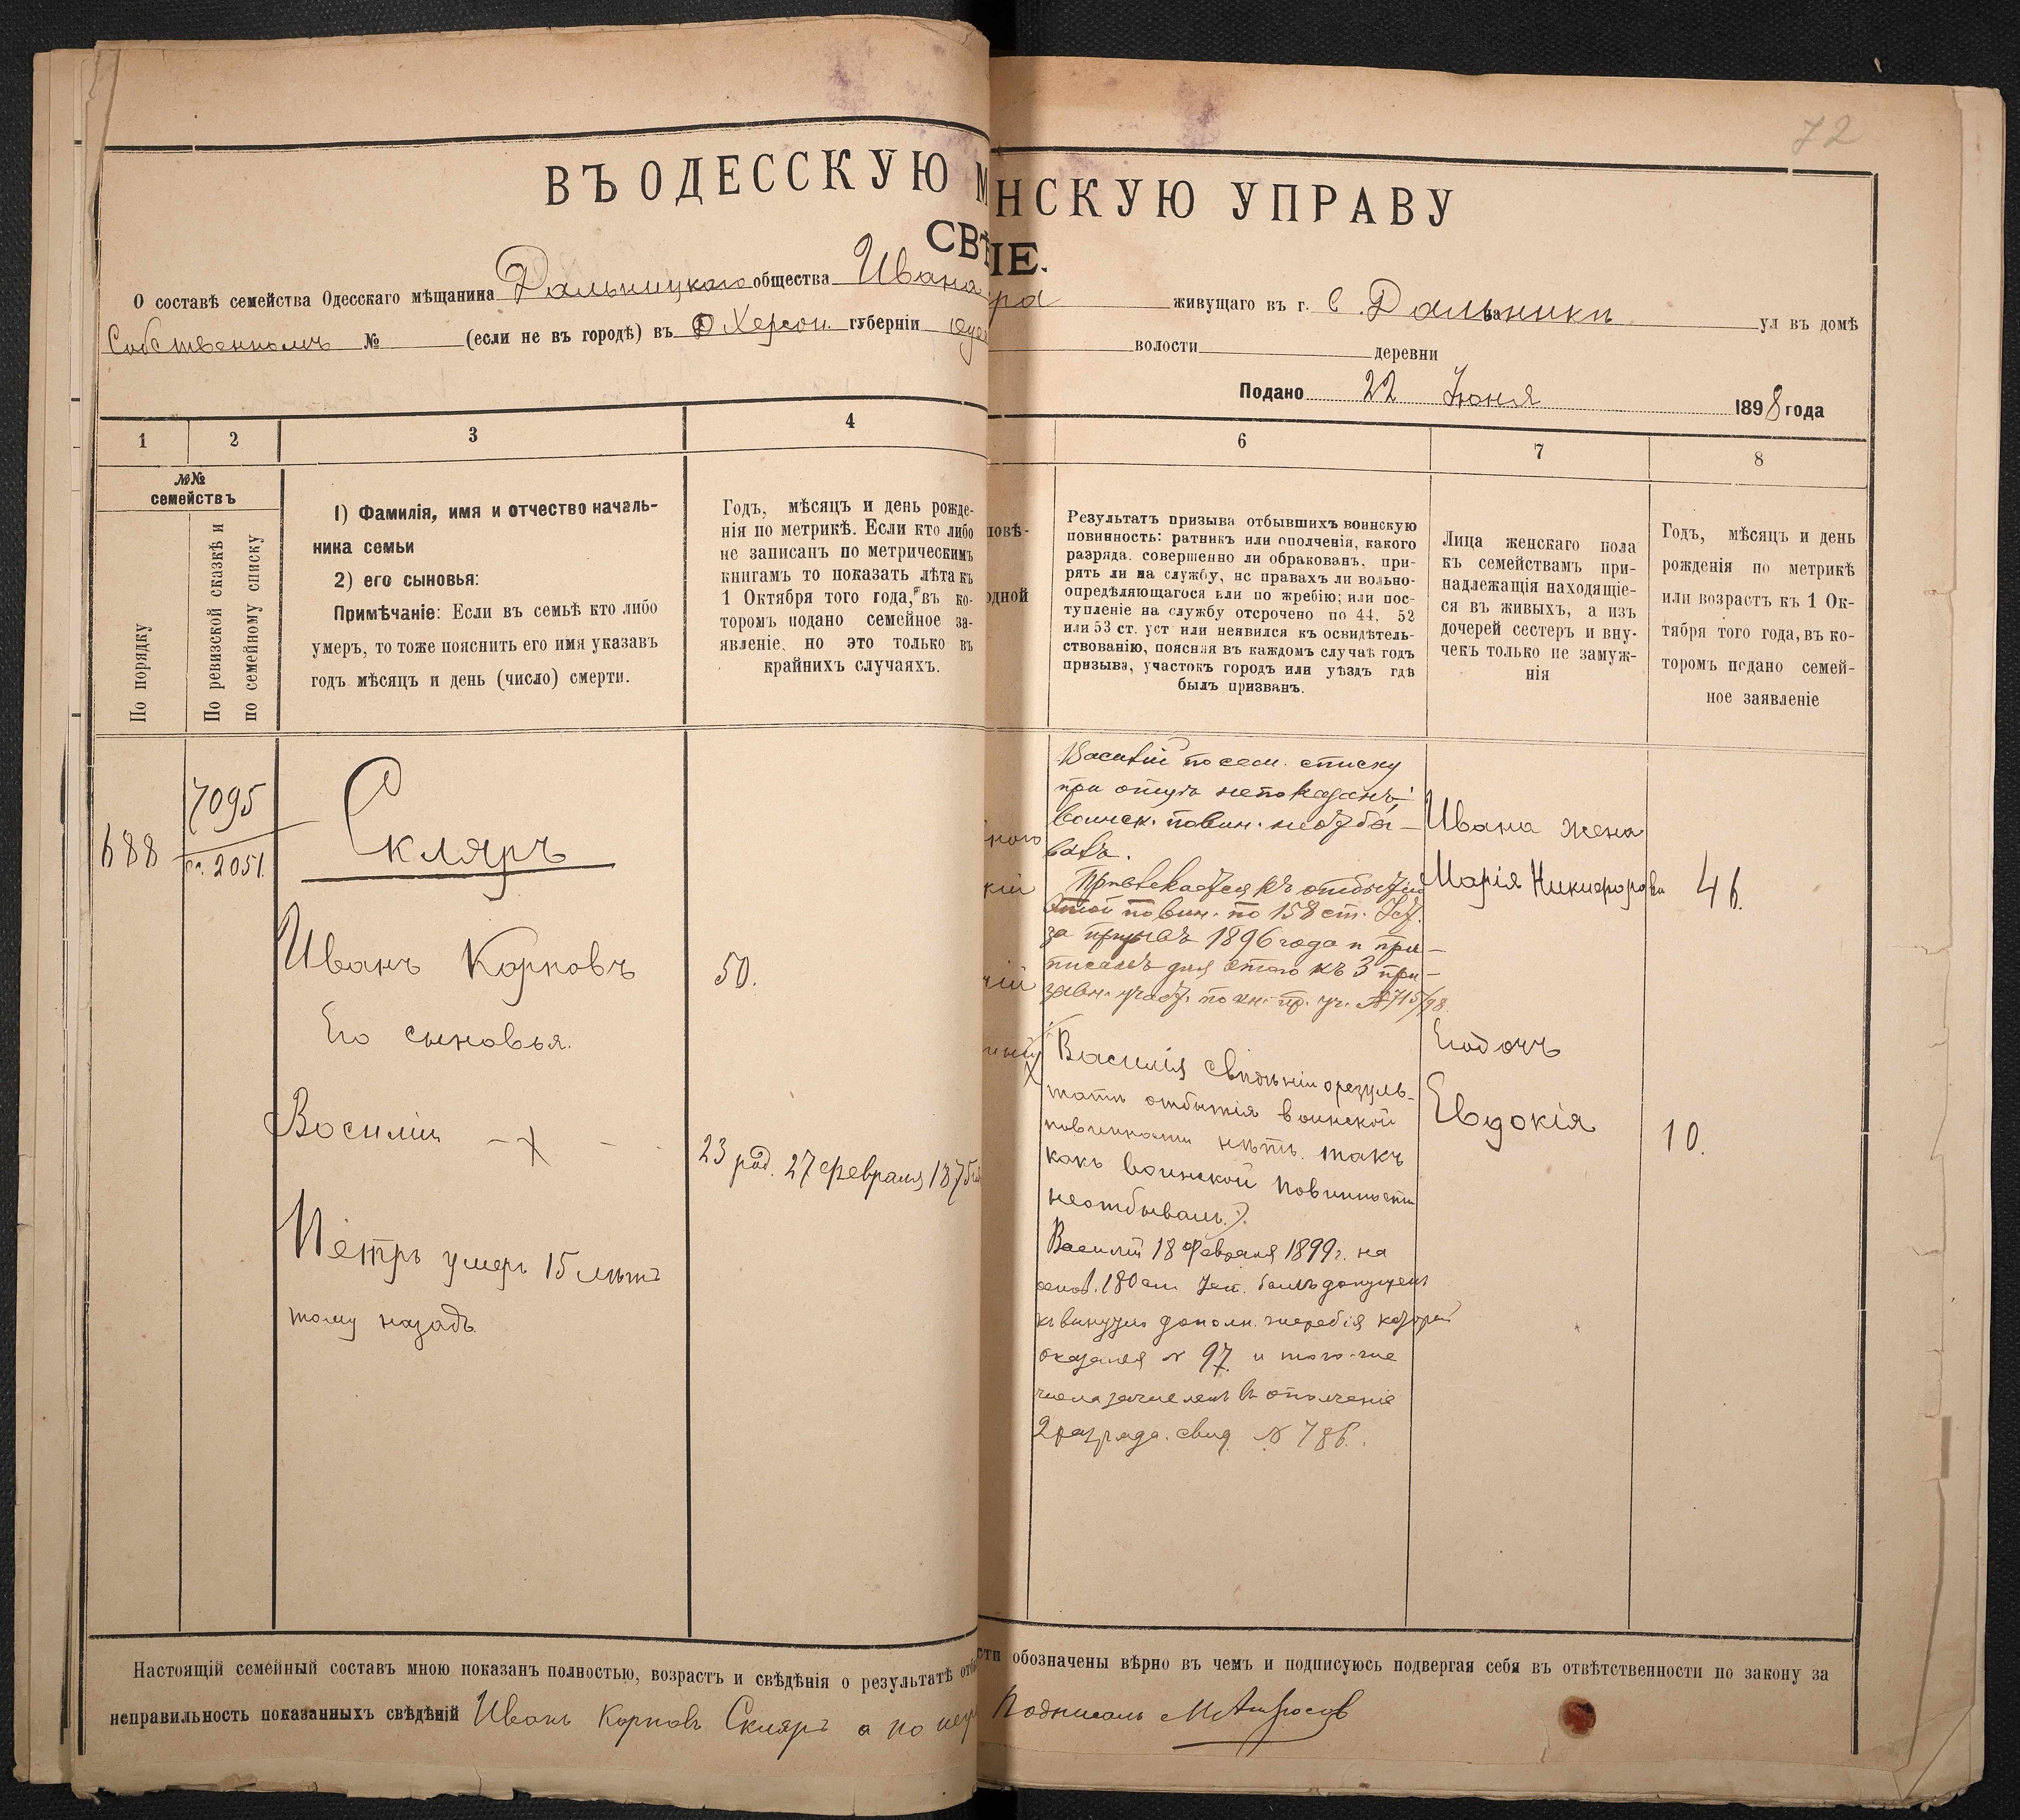 72
ВЪ ОДЕССКУЮ М
НСКУЮ УПРАВУ
СВѢ
ІЕ.
О составѣ семейства Одесскаго мѣщанина Дальницкаго общества Ивана
ра живущаго въ г. с. Дальники ул въ домѣ
Собственномъ № (если не въ городѣ) въ Херсон. губерніи
волости деревни
Подано 22 Іюня 1898 года
1 2 3 4
6 7 8
№№ семействъ
По порядку
По ревизской сказкѣ и
по семейному списку
1) Фамилія, имя и отчество началь-
ника семьи
2) его сыновья:
Примѣчаніе: Если въ семьѣ кто либо
умеръ, то тоже пояснить его имя указавъ
годъ мѣсяцъ и день (число) смерти.
Годъ, мѣсяцъ и день рожде-
нія по метрикѣ. Если кто либо
не записанъ по метрическимъ
книгамъ то показать лѣта къ
1 Октября того года, въ ко-
торомъ подано семейное за-
явленіе, но это только въ
крайнихъ случаяхъ.
повѣ-
одной
Результатъ призыва отбывшихъ воинскую
повинность: ратникъ или ополченія, какого
разряда. совершенно ли обракованъ, при-
рять ли на службу, нс правахъ ли вольно-
опредѣляющагося или по жребію; или пос-
тупленіе на службу отсрочено по 44, 52
или 53 ст. уст или неявился къ освидѣтель-
ствованію, поясняя въ каждомъ случаѣ годъ
призыва, участокъ городъ или уѣздъ гдѣ
былъ призванъ.
Лица женскаго пола
къ семействамъ при-
надлежащія находящіе-
ся въ живыхъ, а изъ
дочерей сестеръ и вну-
чекъ только не замуж-
нія
Годъ, мѣсяцъ и день
рожденія по метрикѣ
или возрастъ къ 1 Ок-
тября того года, въ ко-
торомъ подано семей-
ное заявленіе
688
7095
2051.
Скляръ
Иванъ Карповъ 50.
Его сыновья.
Василій
23 род. 27 февраля 1875
Петръ умеръ 15 лѣтъ
тому назадъ
ного
кій
чій
ный
Василій по сем. списку
при отцѣ непоказанъ,
воинск. повин. неотбы-
валъ.
Привлекается къ отбытію
этой повин. по 158 ст. Уст.
за призывъ 1896 года и при-
писанъ для этого къ 3 при-
зывн. участ. по кн. пр. уч. № 715/98.
Василія свѣдѣній о резуль-
татѣ отбытія воинской
повинности нѣтъ такъ
какъ воинской повинности
неотбывалъ.
Василій 18 февраля 1899 г. на
основ. 180 ст. Уст. былъ допущенъ
къ вынутію дополн. жеребія который
оказался № 97 и того-же
числа зачисленъ въ ополченіе
2 разряда. свид. № 786.
Ивана жена
Марія Никифорова 46.
Его дочь
Евдокія 10.
Настоящій семейный составъ мною показанъ полностью, возрастъ и свѣдѣнія о результатѣ отбы
сти обозначены вѣрно въ чемъ и подписуюсь подвергая себя въ отвѣтственности по закону за
неправильность показанныхъ свѣдѣній Иванъ Карповъ Скляръ а по
Подписалъ